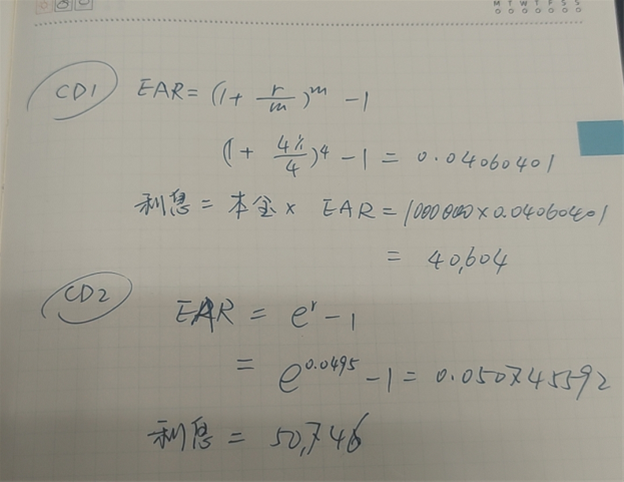 M T W T F S S
CD1 EAR = (1 + r/m)^m - 1
(1 + 4%/4)^4 - 1 = 0.04060401
利息 = 本金 × EAR = 1000000 × 0.04060401
= 40,604
CD2
EAR = e^r - 1
= e^0.0495 - 1 = 0.050745592
利息 = 50,746